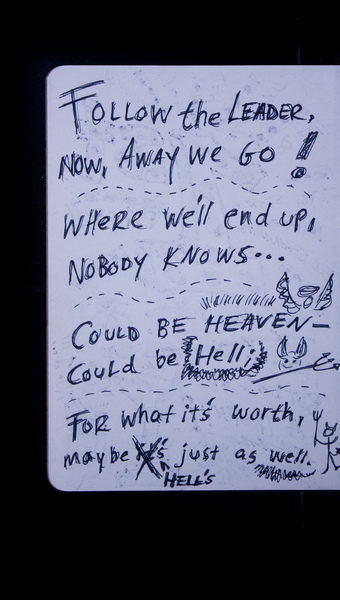 FOLLOW the LEADER,
NOW, AWAY we GO!
WHERE we'll end up,
NOBODY KNOWS...
COULD BE HEAVEN-
COULD be Hell;
FOR what it's worth,
maybe it's just as well.
HELL'S